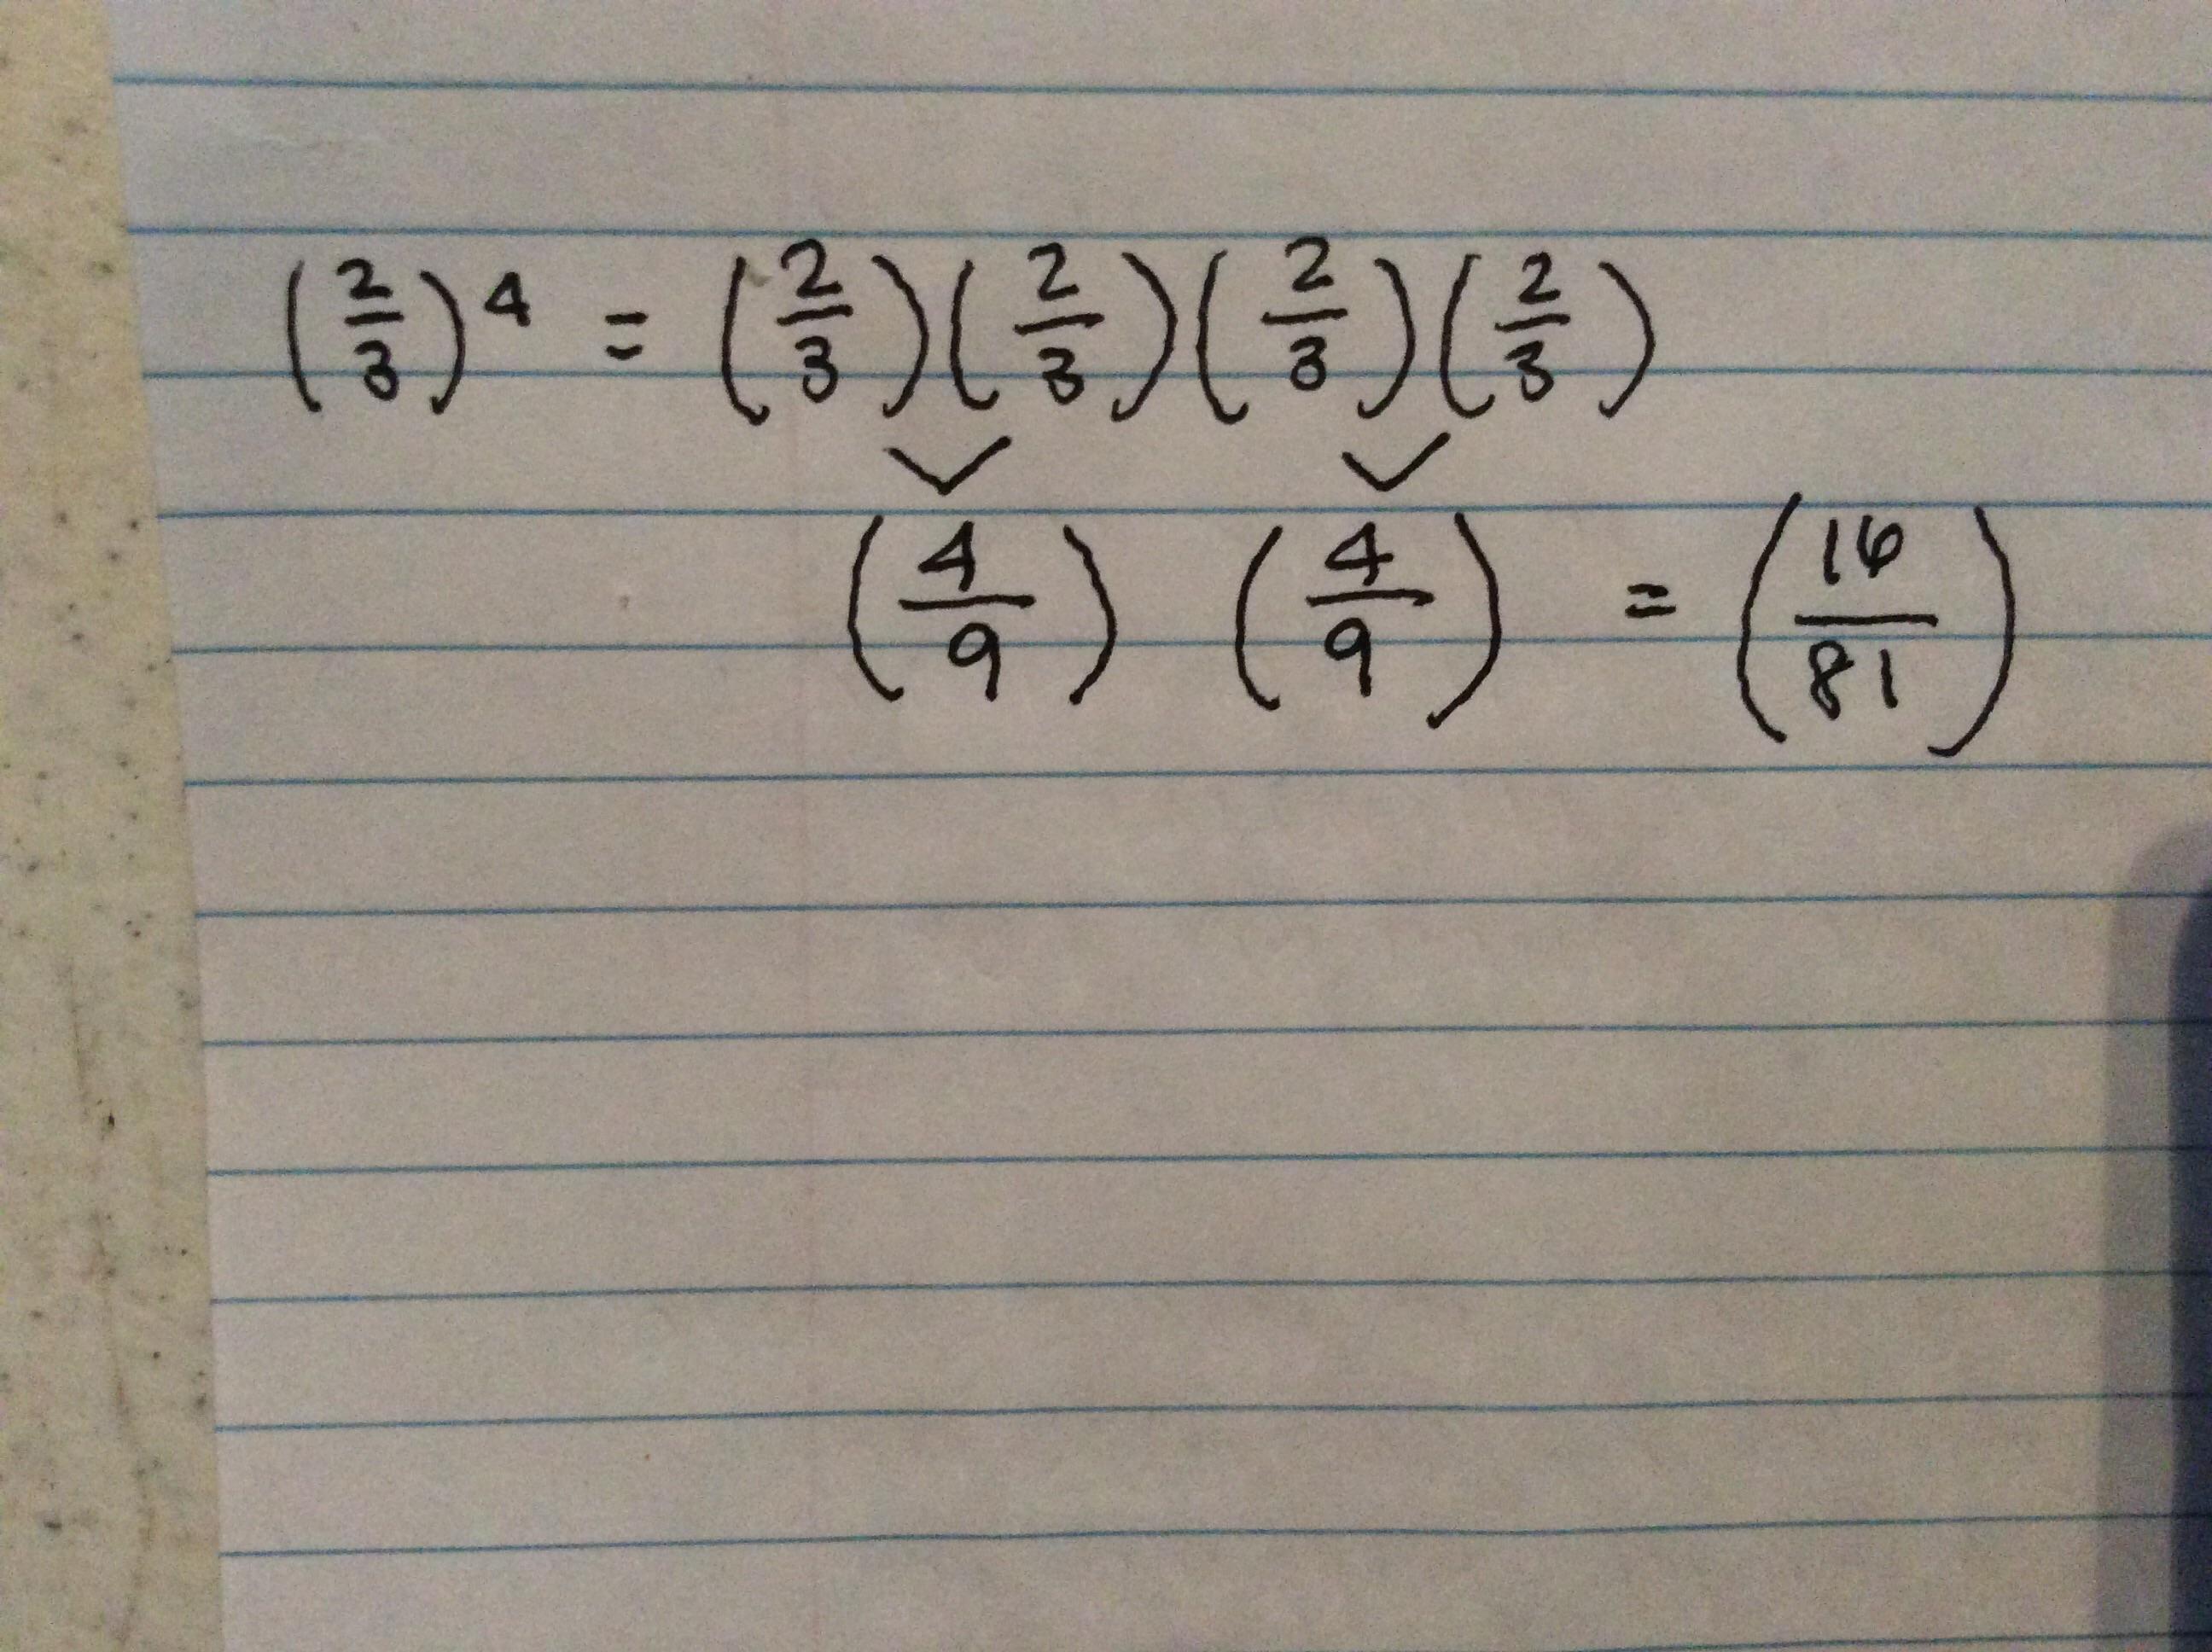 (2/3)^4 = (2/3)(2/3)(2/3)(2/3)
(4/9) (4/9) = (16/81)